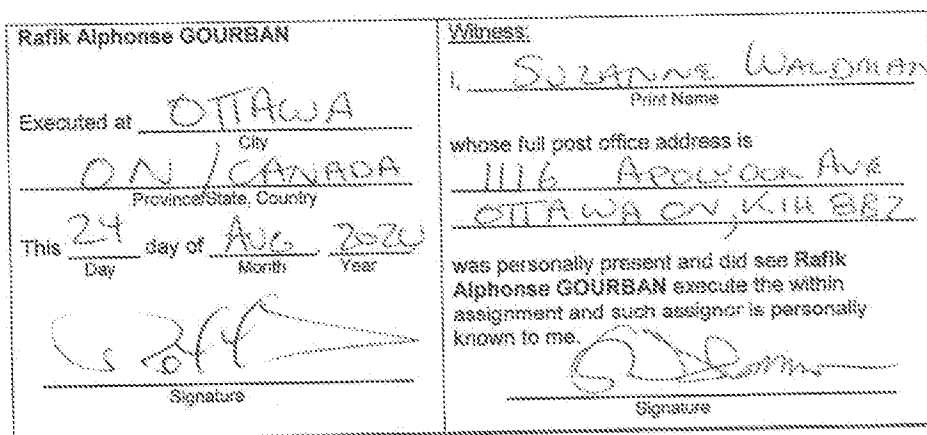 Rafik Alphonse GOURBAN
Executed at OTTAWA
City
ON / CANADA
Province/State, Country
This 24 day of AUG 2020
Day Month Year
Signature
Witness:
I, SUZANNE WALDMAN
Print Name
whose full post office address is
1116 AVE
OTTAWA ON, K1H
was personally present and did see Rafik
Alphonse GOURBAN execute the within
assignment and such assignor is personally
known to me.
Signature